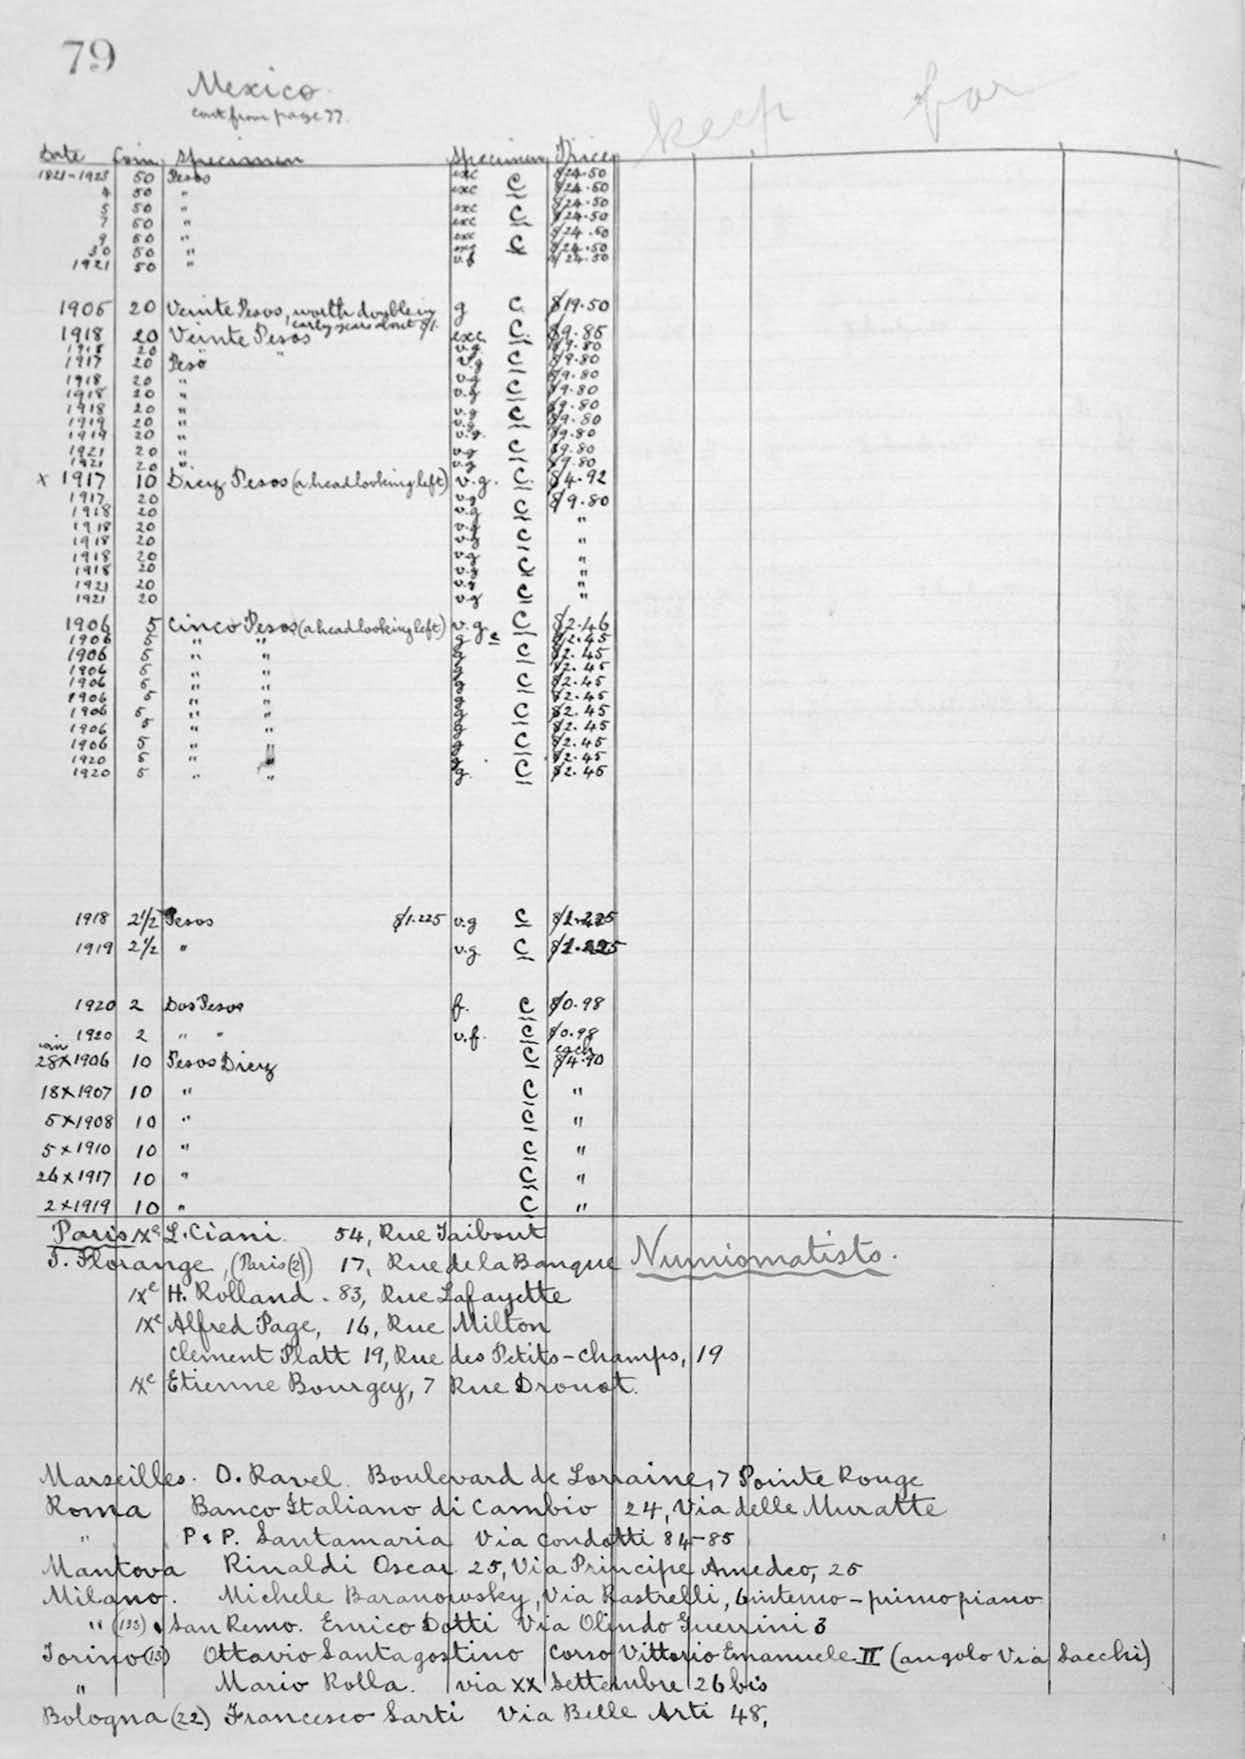 79
Mexico
cont from page 77.
keep for
Date Coin Specimen Specimen Price
1821-1923 50 Pesos exc C $24.50
4 50 " exc C $24.50
5 50 " exc C $24.50
7 50 " exc C $24.50
9 50 " exc C $24.50
30 50 " exc C $24.50
1921 50 " v.f $24.50
1905 20 Veinte Pesos, worth double in g C. $19.50
early years about
1918 20 Veinte Pesos exc. C. $9.85
1918 20 " " v.g. $9.80
1917 20 Peso v.g C $9.80
1918 20 " v.g $9.80
1918 20 " v.g C $9.80
1918 20 " v.g C $9.80
1919 20 " v.g. $9.80
1919 20 " v.g. $9.80
1921 20 " v.g C $9.80
1921 20 " v.g $9.80
x 1917 10 Diez Pesos (a head looking left) v.g. C. $4.92
1917 20 v.g $9.80
1918 20 v.g C "
1918 20 v.g C
1918 20 v.g "
1918 20 v.g C "
1918 20 v.g "
1921 20 v.g C "
1921 20 v.g "
1906 5 Cinco Pesos (a head looking left) v.g. C $2.46
1906 5 " " g c $2.45
1906 5 " " g C $2.45
1906 5 " " g $2.45
1906 5 " " g C $2.45
1906 5 " " g $2.45
1906 5 " " g C $2.45
1906 5 " " g $2.45
1906 5 " " g C $2.45
1920 5 " " g $2.45
1920 5 " " g. C $2.45
1918 2½ Pesos $1.225 v.g C $1.225
1919 2½ " v.g. C $1.225
1920 2 Dos Pesos f. C $0.98
1920 2 " " v.f. C $0.98
coin each
28x1906 10 Pesos Diez C $4.90
18x1907 10 " C "
5x1908 10 " C "
5x1910 10 " C "
26x1917 10 " C "
2x1919 10 " C "
Paris IXe L. Ciani. 54, Rue Taibout
J. Florange, (Paris(2)) 17, Rue de la Banque Numismatists.
IXe H. Rolland. 83, Rue Lafayette
IXe Alfred Page, 16, Rue Milton
Clement Platt 19, Rue des Petits-Champs, 19
IXe Etienne Bourgey, 7 Rue Drouot.
Marseilles. O. Ravel. Boulevard de Lorraine, 7 Pointe Rouge
Roma Banco Italiano di Cambio 24, Via delle Muratte
" P & P. Santamaria Via Condotti 84-85
Mantova Rinaldi Oscar 25, Via Principe Amedeo, 25
Milano. Michele Baranowsky, Via Rastrelli, 6 interno - primo piano
" (133) San Remo. Enrico Dotti Via Olindo Guerrini 3
Torino (13) Ottavio Santagostino Corso Vittorio Emanuele II (angolo Via Sacchi)
" Mario Rolla. via XX Settembre 26 bis
Bologna (22) Francesco Sarti Via Belle Arti 48,